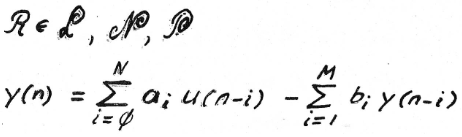 R ∈ L, N, D
y(n) = ∑_{i=0}^{N} a_i u(n-i) - ∑_{i=1}^{M} b_i y(n-i)